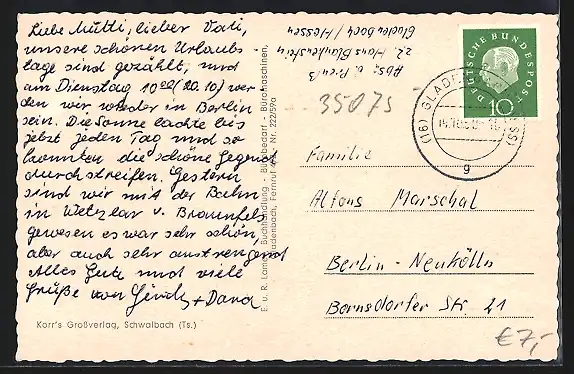 Liebe Mutti, lieber Vati,
unsere schönen Urlaubs-
tage sind gezählt, und
am Dienstag 10 (20.10) wer
den wir wieder in Berlin
sein. Die Sonne lachte bis
jetzt jeden Tag und so
konnten die schöne Gegend
durchstreifen. Gestern
sind wir mit der Bahn
in Wetzlar u. Braunfels
gewesen es war sehr schön,
aber auch sehr anstrengend
Alles Gute und viele
Grüße von
Korr's Großverlag, Schwalbach (Ts.)
E. u. R. Buchhandlung - Bürobedarf - Büromaschinen,
Gladenbach, Fernruf Nr. 222/59a
Abs:
z. Z. Haus Blankenstein
Gladenbach / Hessen
35075
DEUTSCHE BUNDESPOST
10
(16) GLADENBACH
g
Familie
Alfons Marschal
Berlin-Neukölln
Bornsdorfer Str. 21
€ 7,-